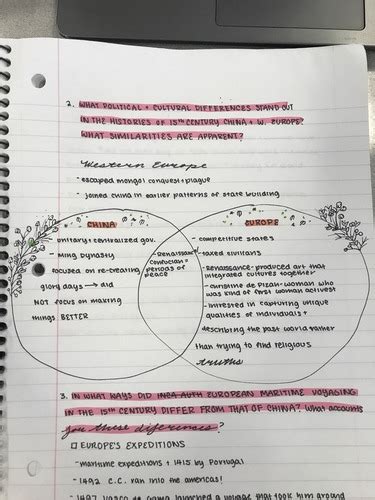 2. WHAT POLITICAL + CULTURAL DIFFERENCES STAND OUT
IN THE HISTORIES OF 15TH CENTURY CHINA + W. EUROPE?
WHAT SIMILARITIES ARE APPARENT?
Western Europe
- escaped mongol conquest + plague
- joined china in earlier patterns of state building
CHINA
- unitary + centralized gov.
- Ming Dynasty
focused on re-creating
glory days → did
NOT focus on making
things BETTER
- Renaissance
Confucian =
periods of
peace
EUROPE
- competitive states
- taxed civilians
- Renaissance - produced art that
integrated cultures together
- christine de Pizan - woman who
was kind of first woman activist
- intrested in capturing unique
qualities of individuals +
describing the past world rather
than trying to find religious
truths
3. IN WHAT WAYS DID INCA AUTH EUROPEAN MARITIME VOYAGING
IN THE 15TH CENTURY DIFFER FROM THAT OF CHINA? What accounts
you these differences?
□ EUROPE'S EXPEDITIONS
- maritime expeditions + 1415 by Portugal
- 1492 C.C. ran into the americas!
- 1497 Vasco da Gama launched a voyage that took him around